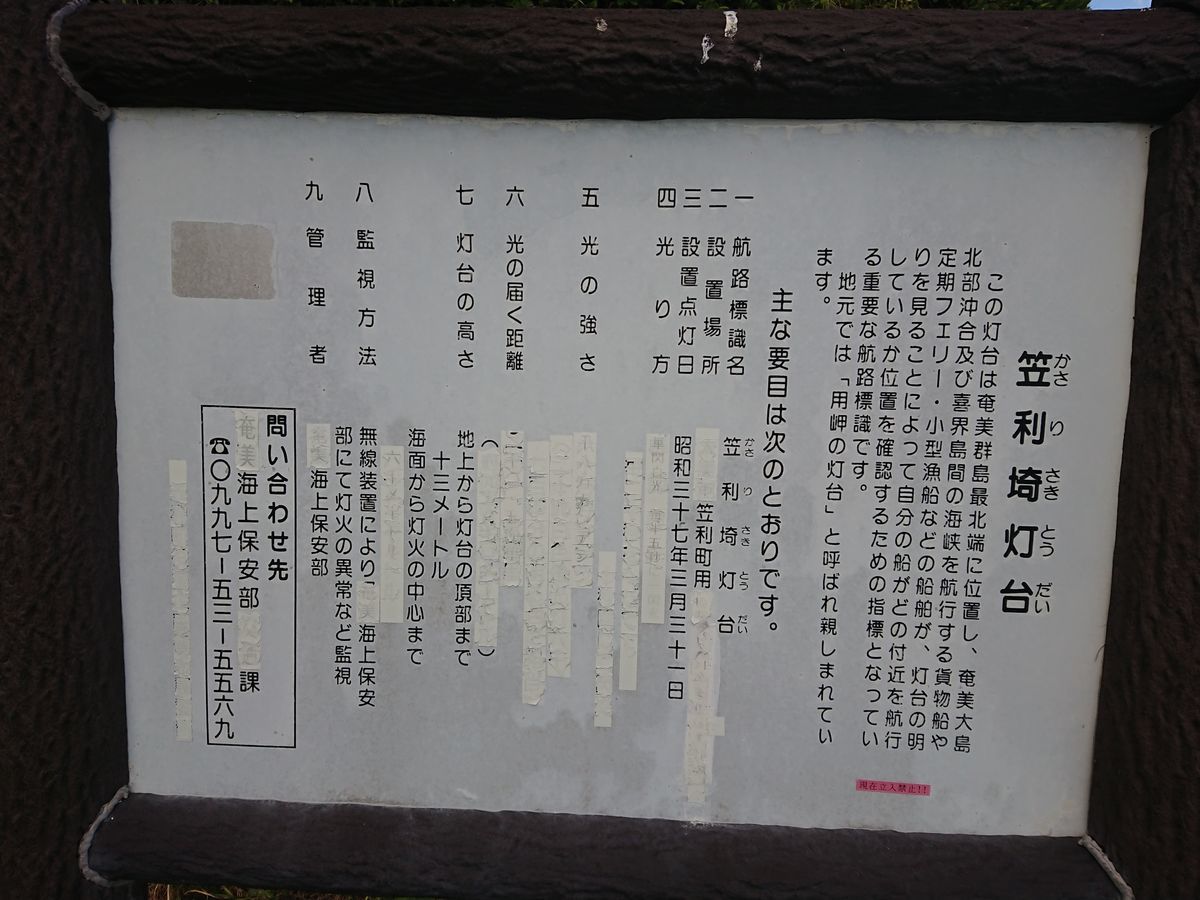 笠利埼灯台
かさ り さき とう だい
この灯台は奄美群島最北端に位置し、奄美大島
北部沖合及び喜界島間の海峡を航行する貨物船や
定期フェリー・小型漁船などの船舶が、灯台の明
りを見ることによって自分の船がどの付近を航行
しているか位置を確認するための指標となってい
る重要な航路標識です。
地元では「用岬の灯台」と呼ばれ親しまれてい
ます。
主な要目は次のとおりです。
一 航路標識名 笠利埼灯台
かさ り さき とう だい
二 設置場所 笠利町用
三 設置点灯日 昭和三十七年三月三十一日
四 光り方
五 光の強さ
六 光の届く距離
七 灯台の高さ 地上から灯台の頂部まで
十三メートル
海面から灯火の中心まで
八 監視方法 無線装置により「奄美海上保安
部にて灯火の異常など監視
九 管理者 奄美海上保安部
問い合わせ先
奄美海上保安部 課
☎〇九九七ー五三ー五五六九
現在立入禁止!!